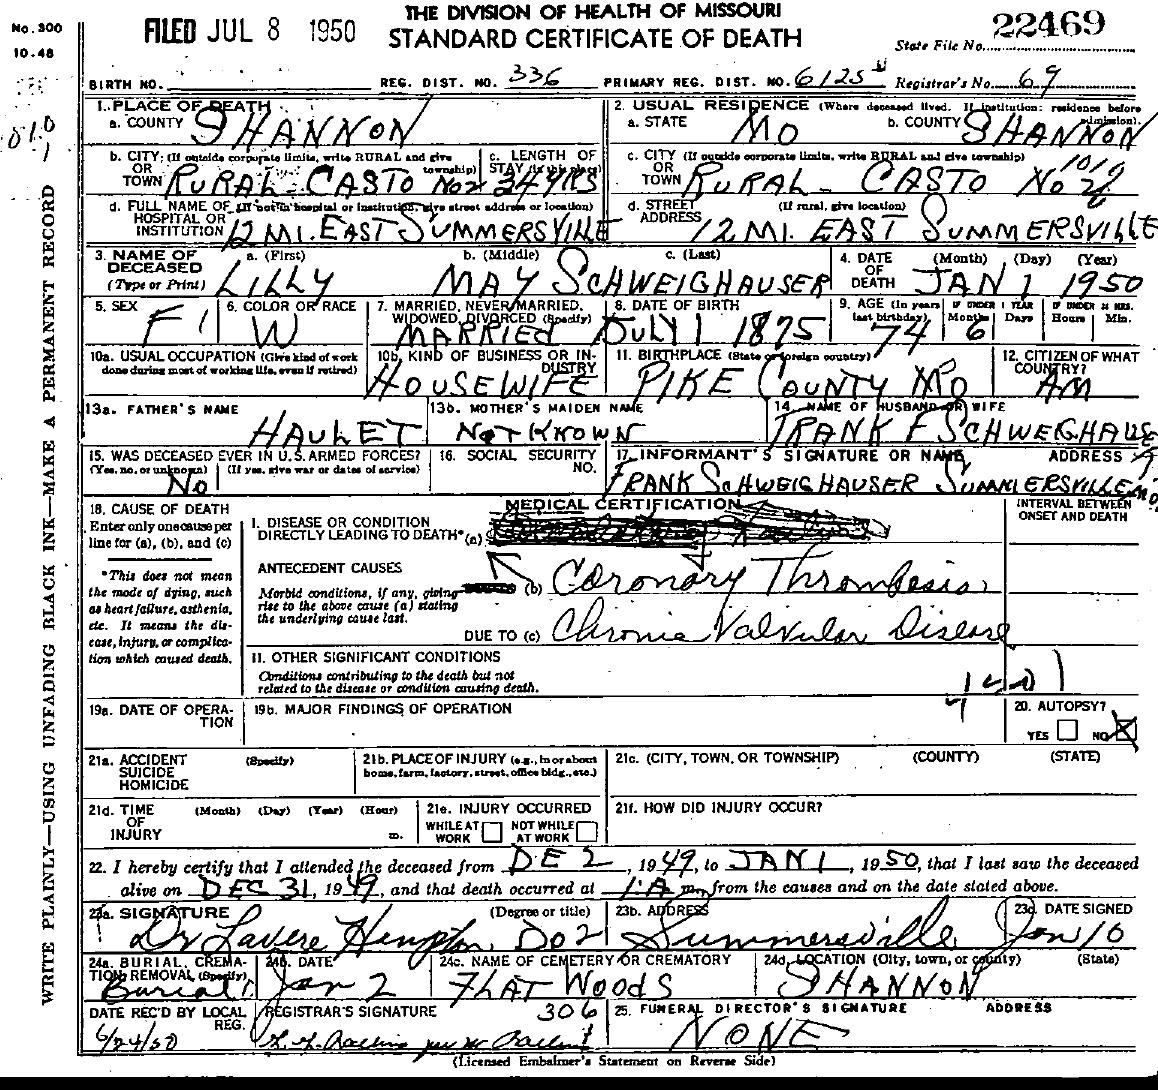 No. 300
10-48
FILED JUL 8 1950
THE DIVISION OF HEALTH OF MISSOURI
STANDARD CERTIFICATE OF DEATH
22469
State File No.
BIRTH NO. REG. DIST. NO. 336 PRIMARY REG. DIST. NO. 6125 Registrar's No. 69
1. PLACE OF DEATH
a. COUNTY SHANNON
2. USUAL RESIDENCE (Where deceased lived. If institution: residence before admission).
a. STATE MO b. COUNTY SHANNON
b. CITY (If outside corporate limits, write RURAL and give township) OR TOWN RURAL - CASTO No 2
c. LENGTH OF STAY (in this place) 34 YRS
c. CITY (If outside corporate limits, write RURAL and give township) OR TOWN RURAL - CASTO No 2
d. FULL NAME OF (If not in hospital or institution, give street address or location) HOSPITAL OR INSTITUTION 12 MI. EAST SUMMERSVILLE
d. STREET ADDRESS (If rural, give location) 12 MI. EAST SUMMERSVILLE
3. NAME OF DECEASED (Type or Print) a. (First) LILLY b. (Middle) MAY c. (Last) SCHWEIGHAUSER
4. DATE OF DEATH (Month) (Day) (Year) JAN 1 1950
5. SEX F
6. COLOR OR RACE W
7. MARRIED, NEVER MARRIED, WIDOWED, DIVORCED (Specify) MARRIED
8. DATE OF BIRTH JULY 1 1875
9. AGE (In years last birthday) 74 IF UNDER 1 YEAR Months 6 Days IF UNDER 24 HRS. Hours Min.
10a. USUAL OCCUPATION (Give kind of work done during most of working life, even if retired)
10b. KIND OF BUSINESS OR INDUSTRY HOUSEWIFE
11. BIRTHPLACE (State or foreign country) PIKE COUNTY MO
12. CITIZEN OF WHAT COUNTRY? AM
13a. FATHER'S NAME HAULET
13b. MOTHER'S MAIDEN NAME NOT KNOWN
14. NAME OF HUSBAND OR WIFE FRANK F SCHWEIGHAUSE
15. WAS DECEASED EVER IN U.S. ARMED FORCES? (Yes, no, or unknown) (If yes, give war or dates of service) No
16. SOCIAL SECURITY NO.
17. INFORMANT'S SIGNATURE OR NAME ADDRESS
FRANK SCHWEIGHAUSER SUMMERSVILLE MO
18. CAUSE OF DEATH
Enter only one cause per line for (a), (b), and (c)
*This does not mean the mode of dying, such as heart failure, asthenia, etc. It means the disease, injury, or complication which caused death.
MEDICAL CERTIFICATION
INTERVAL BETWEEN ONSET AND DEATH
I. DISEASE OR CONDITION DIRECTLY LEADING TO DEATH* (a)
ANTECEDENT CAUSES
Morbid conditions, if any, giving rise to the above cause (a) stating the underlying cause last.
(b) Coronary Thrombosis
DUE TO (c) Chronic Valvular Disease
II. OTHER SIGNIFICANT CONDITIONS
Conditions contributing to the death but not related to the disease or condition causing death.
19a. DATE OF OPERATION
19b. MAJOR FINDINGS OF OPERATION
20. AUTOPSY?
YES NO X
21a. ACCIDENT SUICIDE HOMICIDE (Specify)
21b. PLACE OF INJURY (e.g., in or about home, farm, factory, street, office bldg., etc.)
21c. (CITY, TOWN, OR TOWNSHIP) (COUNTY) (STATE)
21d. TIME OF INJURY (Month) (Day) (Year) (Hour) m.
21e. INJURY OCCURRED WHILE AT WORK NOT WHILE AT WORK
21f. HOW DID INJURY OCCUR?
22. I hereby certify that I attended the deceased from DE 2, 1949, to JAN 1, 1950, that I last saw the deceased
alive on DEC 31, 1949, and that death occurred at 1:A m., from the causes and on the date stated above.
23a. SIGNATURE (Degree or title) Dr Lavere Hampton, DO 2
23b. ADDRESS Summersville
23c. DATE SIGNED Jan 10
24a. BURIAL, CREMATION, REMOVAL (Specify) Burial
24b. DATE Jan 2
24c. NAME OF CEMETERY OR CREMATORY FLAT WOODS
24d. LOCATION (City, town, or county) (State) SHANNON
DATE REC'D BY LOCAL REG. 6/24/50
REGISTRAR'S SIGNATURE 306
25. FUNERAL DIRECTOR'S SIGNATURE ADDRESS
NONE
(Licensed Embalmer's Statement on Reverse Side)
WRITE PLAINLY—USING UNFADING BLACK INK—MAKE A PERMANENT RECORD